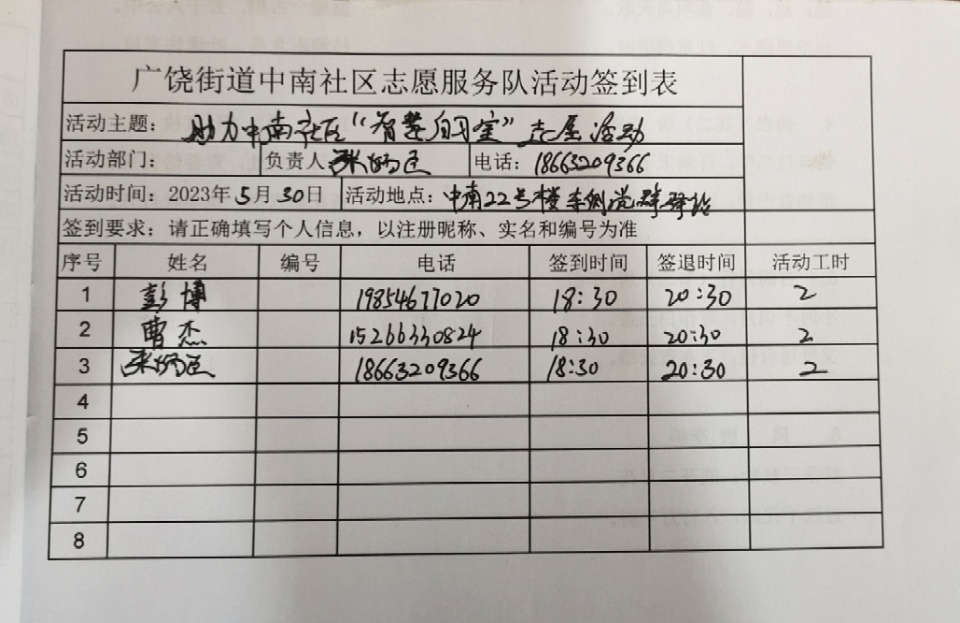 广饶街道中南社区志愿服务队活动签到表
活动主题: 助力中南社区“智慧自习室”志愿活动
活动部门: 负责人 张 电话: 18663209366
活动时间: 2023年5月30日 活动地点: 中南22号楼东侧党群驿站
签到要求: 请正确填写个人信息，以注册昵称、实名和编号为准
序号 姓名 编号 电话 签到时间 签退时间 活动工时
1 彭博 19854677020 18:30 20:30 2
2 曹杰 15266330824 18:30 20:30 2
3 张 18663209366 18:30 20:30 2
4
5
6
7
8